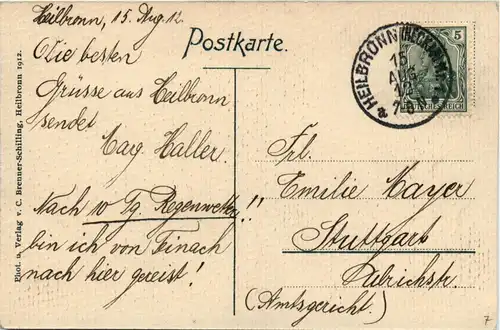 Heilbronn, 15. Aug. 12.
Postkarte.
Die besten
Grüsse aus Heilbronn
sendet
Marg. Haller.
Nach 10 Tg. Regenwetter!!
bin ich von Teinach
nach hier gereist!
HEILBRONN (NECKAR)
15
AUG
12
7-8
5
DEUTSCHES REICH
Frl.
Emilie Mayer
Stuttgart
Ulrichstr.
(Amtsgericht.)
Phot. u. Verlag v. C. Brenner-Schilling, Heilbronn 1912.
7